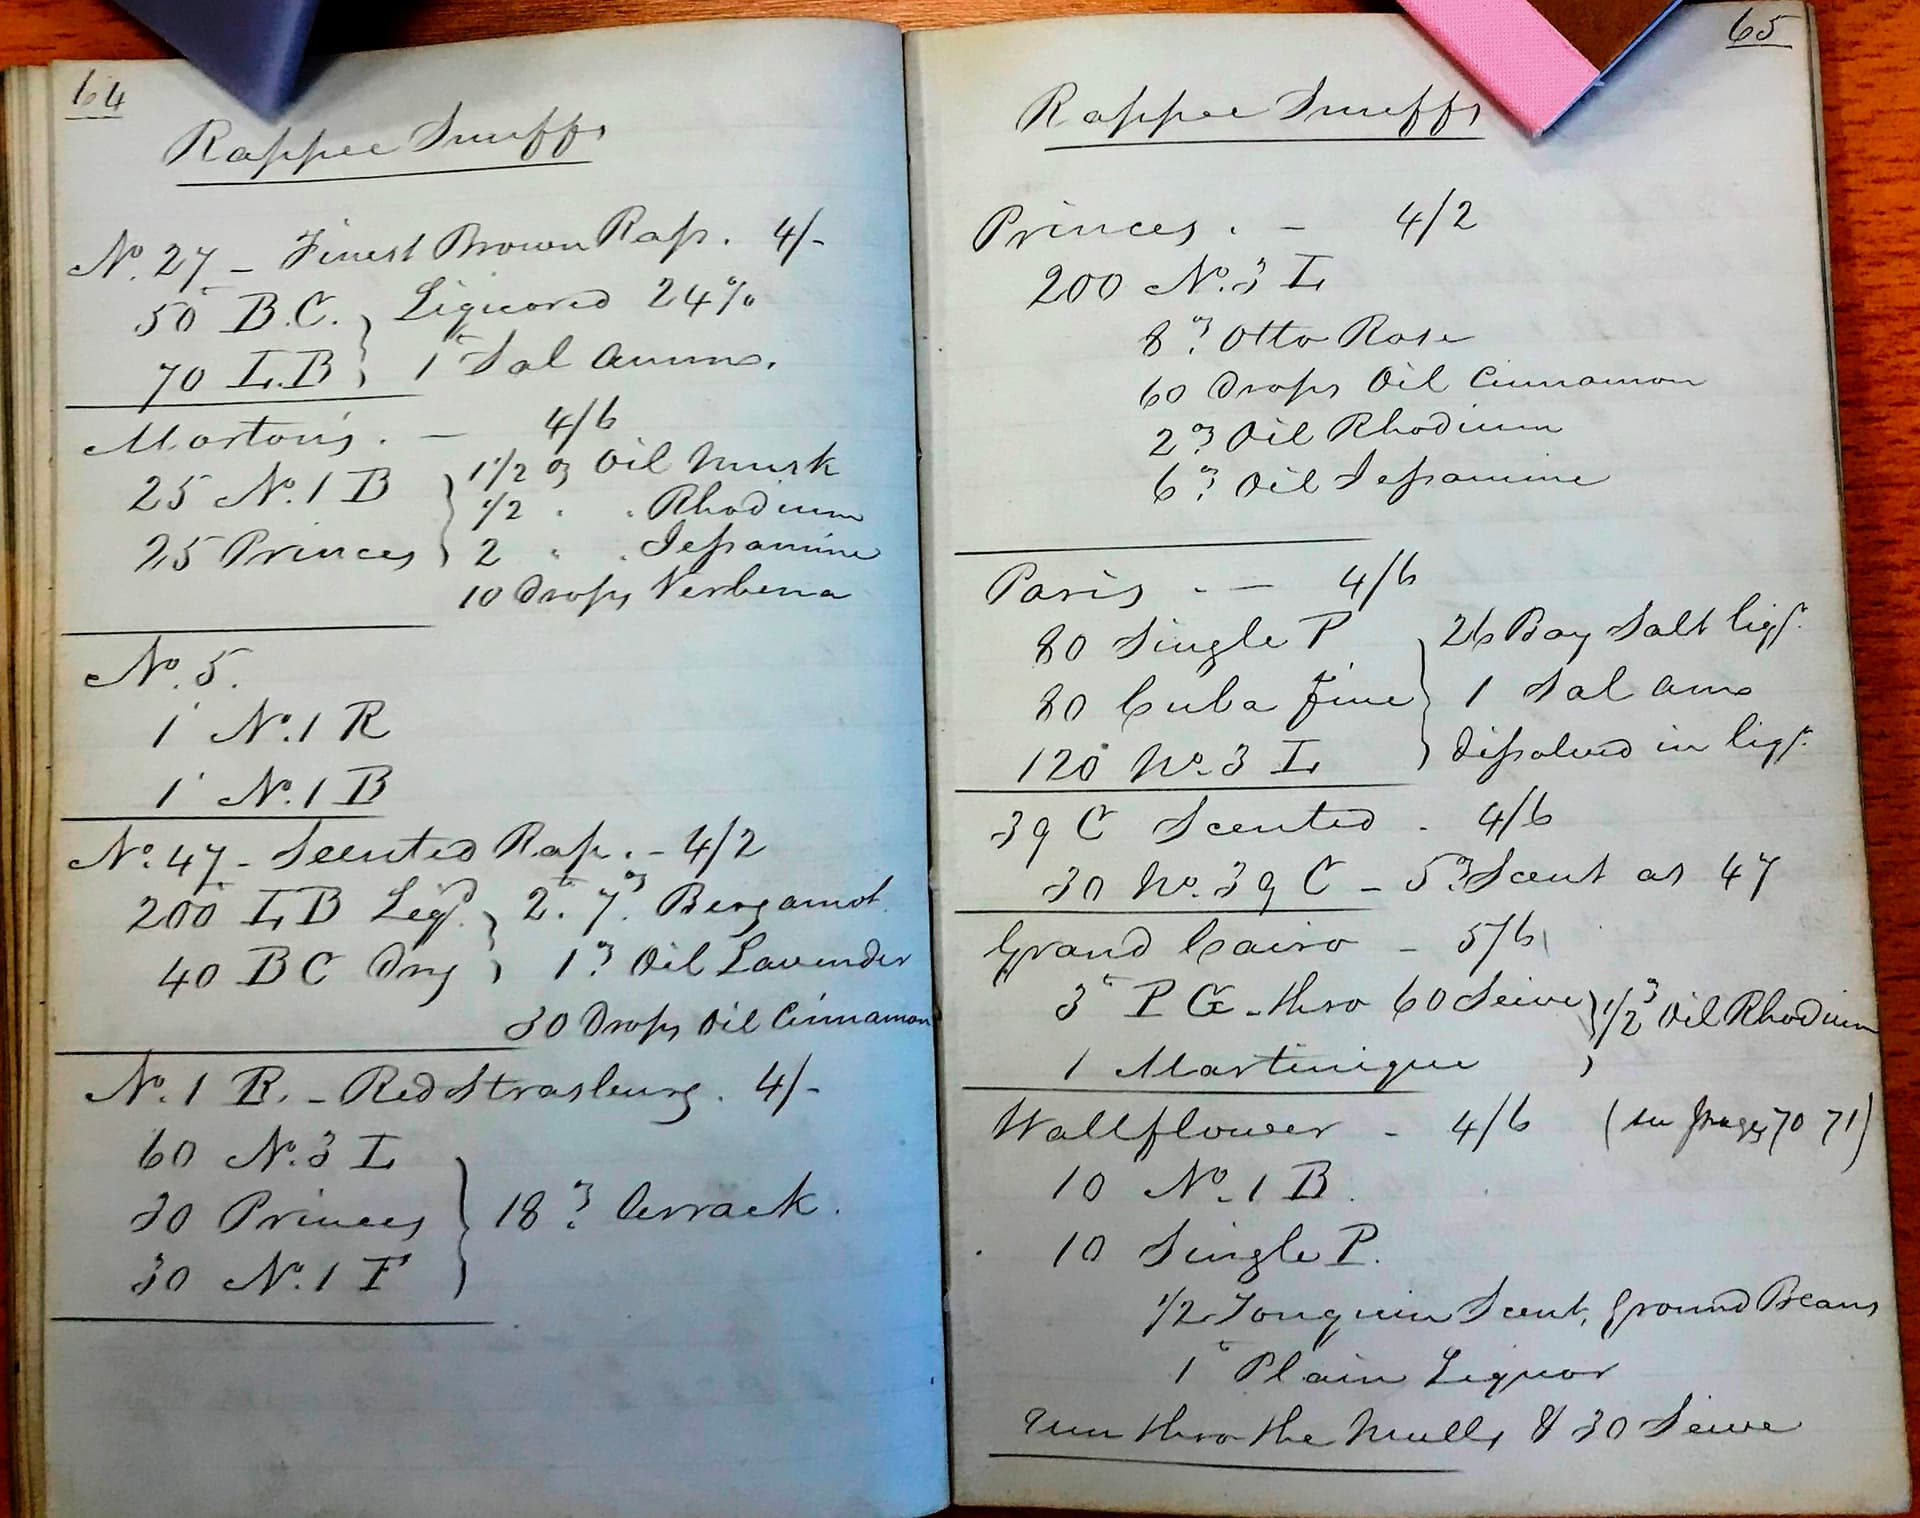 64
Rappee Snuffs
No. 27 - Finest Brown Rap. 4/-
50 B.C. } Liquored 24%
70 L.B } 1 Sal Amm.
Morton's. - 4/6
25 No. 1 B } 1 1/2 oz Oil Musk
1/2 " " Rhodium
25 Princes } 2 " " Jessamine
10 Drops Verbena
No. 5.
1 No. 1 R
1 No. 1 B
No. 47 - Scented Rap. - 4/2
200 LB Liqd. } 2. 7 oz. Bergamot
40 BC Dry } 1 oz. Oil Lavender
30 Drops Oil Cinnamon
No. 1 R. - Red Strasburg. 4/-
60 No. 3 L
30 Princes } 18 oz. Arrack.
30 No. 1 F
65
Rappee Snuffs
Princes. - 4/2
200 No. 3 L
8 oz. Otto Rose
60 Drops Oil Cinnamon
2 oz. Oil Rhodium
6 oz. Oil Jessamine
Paris. - 4/6
80 Single P } 26 Bay Salt liqr.
80 Cuba fine } 1 Sal Amo
120 No. 3 L } Dissolved in liqr.
39 C Scented. 4/6
30 No. 39 C - 5 oz. Scent as 47
Grand Cairo - 5/6
3 P G - thro 60 Seive } 1/2 oz Oil Rhodium
1 Martinique
Wallflower - 4/6 (see pages 70 71)
10 No. 1 B.
10 Single P.
1/2 Tonquin Scent, Ground Beans
1 Plain Liquor
run thro the Mulls & 30 Seive